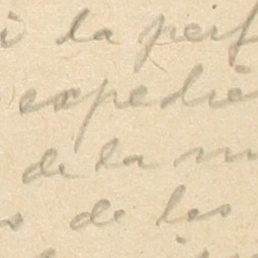 i la perf
expedie
de la m
s de los